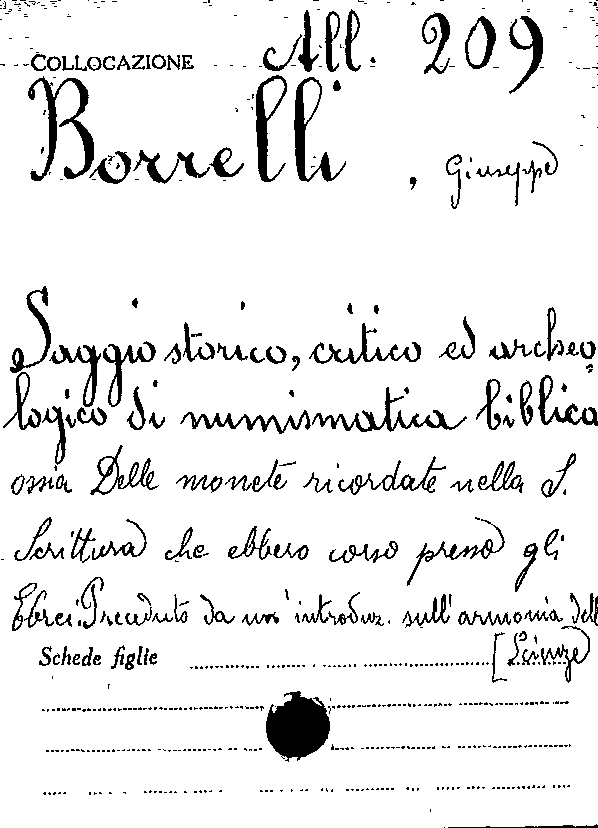 COLLOCAZIONE All. 209
Borrelli, Giuseppe
Saggio storico, critico ed archeo=
logico di numismatica biblica
ossia Delle monete ricordate nella S.
Scrittura che ebbero corso presso gli
Ebrei. Preceduto da un'introduz. sull'armonia dell
Schede figlie [Scienze